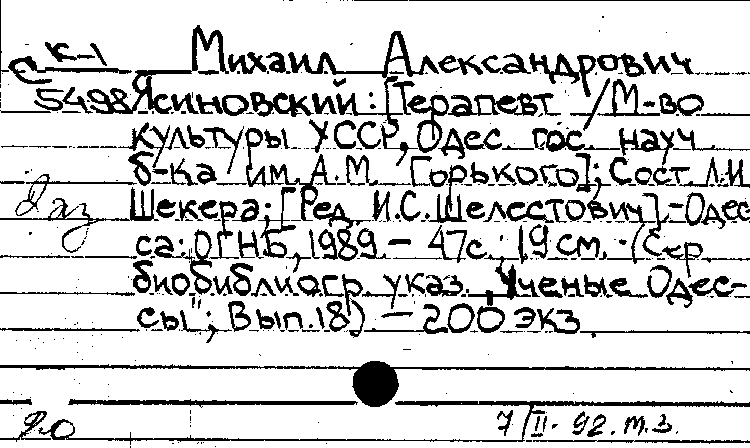 К-1 Михаил Александрович
5498 Ясиновский: [Терапевт /М-во
культуры УССР, Одес. гос. науч.
б-ка им. А.М. Горького]; Сост. Л.И.
2 аз Шекера; [Ред. И.С. Шелестович].-Одес
са: ОГНБ, 1989.- 47с.; 19 см. -(Сер.
биобиблиогр. указ. „Ученые Одес-
сы"; Вып.18) - 200 экз.
7/II- 92. т.з.